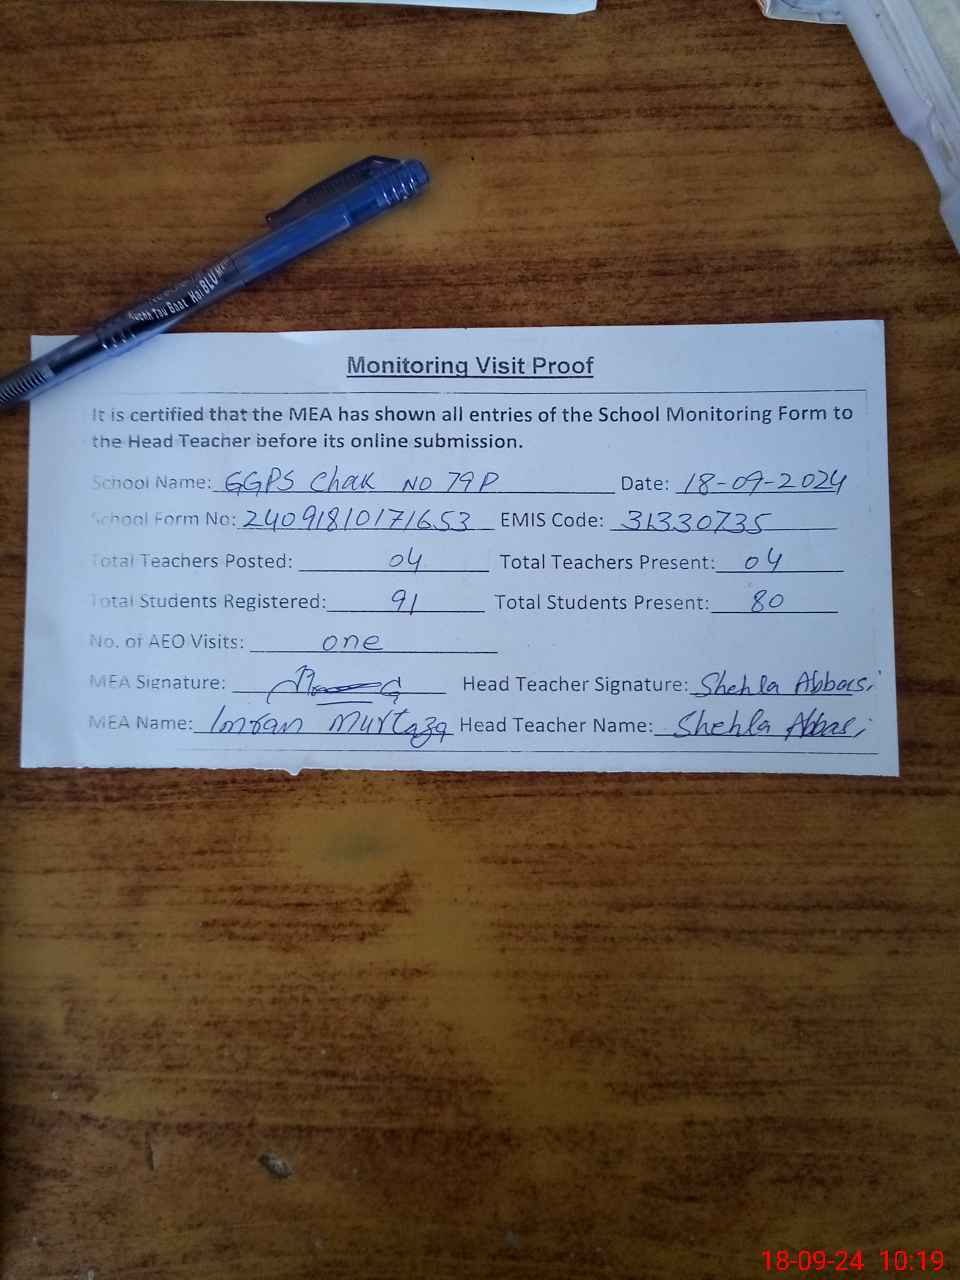 Kuchh Tau Baat Hai BLU
Monitoring Visit Proof
It is certified that the MEA has shown all entries of the School Monitoring Form to
the Head Teacher before its online submission.
School Name: GGPS Chak NO 79P Date: 18-09-2024
School Form No: 24091810171653 EMIS Code: 31330735
Total Teachers Posted: 04 Total Teachers Present: 04
Total Students Registered: 91 Total Students Present: 80
No. of AEO Visits: one
MEA Signature: Head Teacher Signature: Shehla Abbasi
MEA Name: Imran Murtaza Head Teacher Name: Shehla Abbasi
18-09-24 10:19